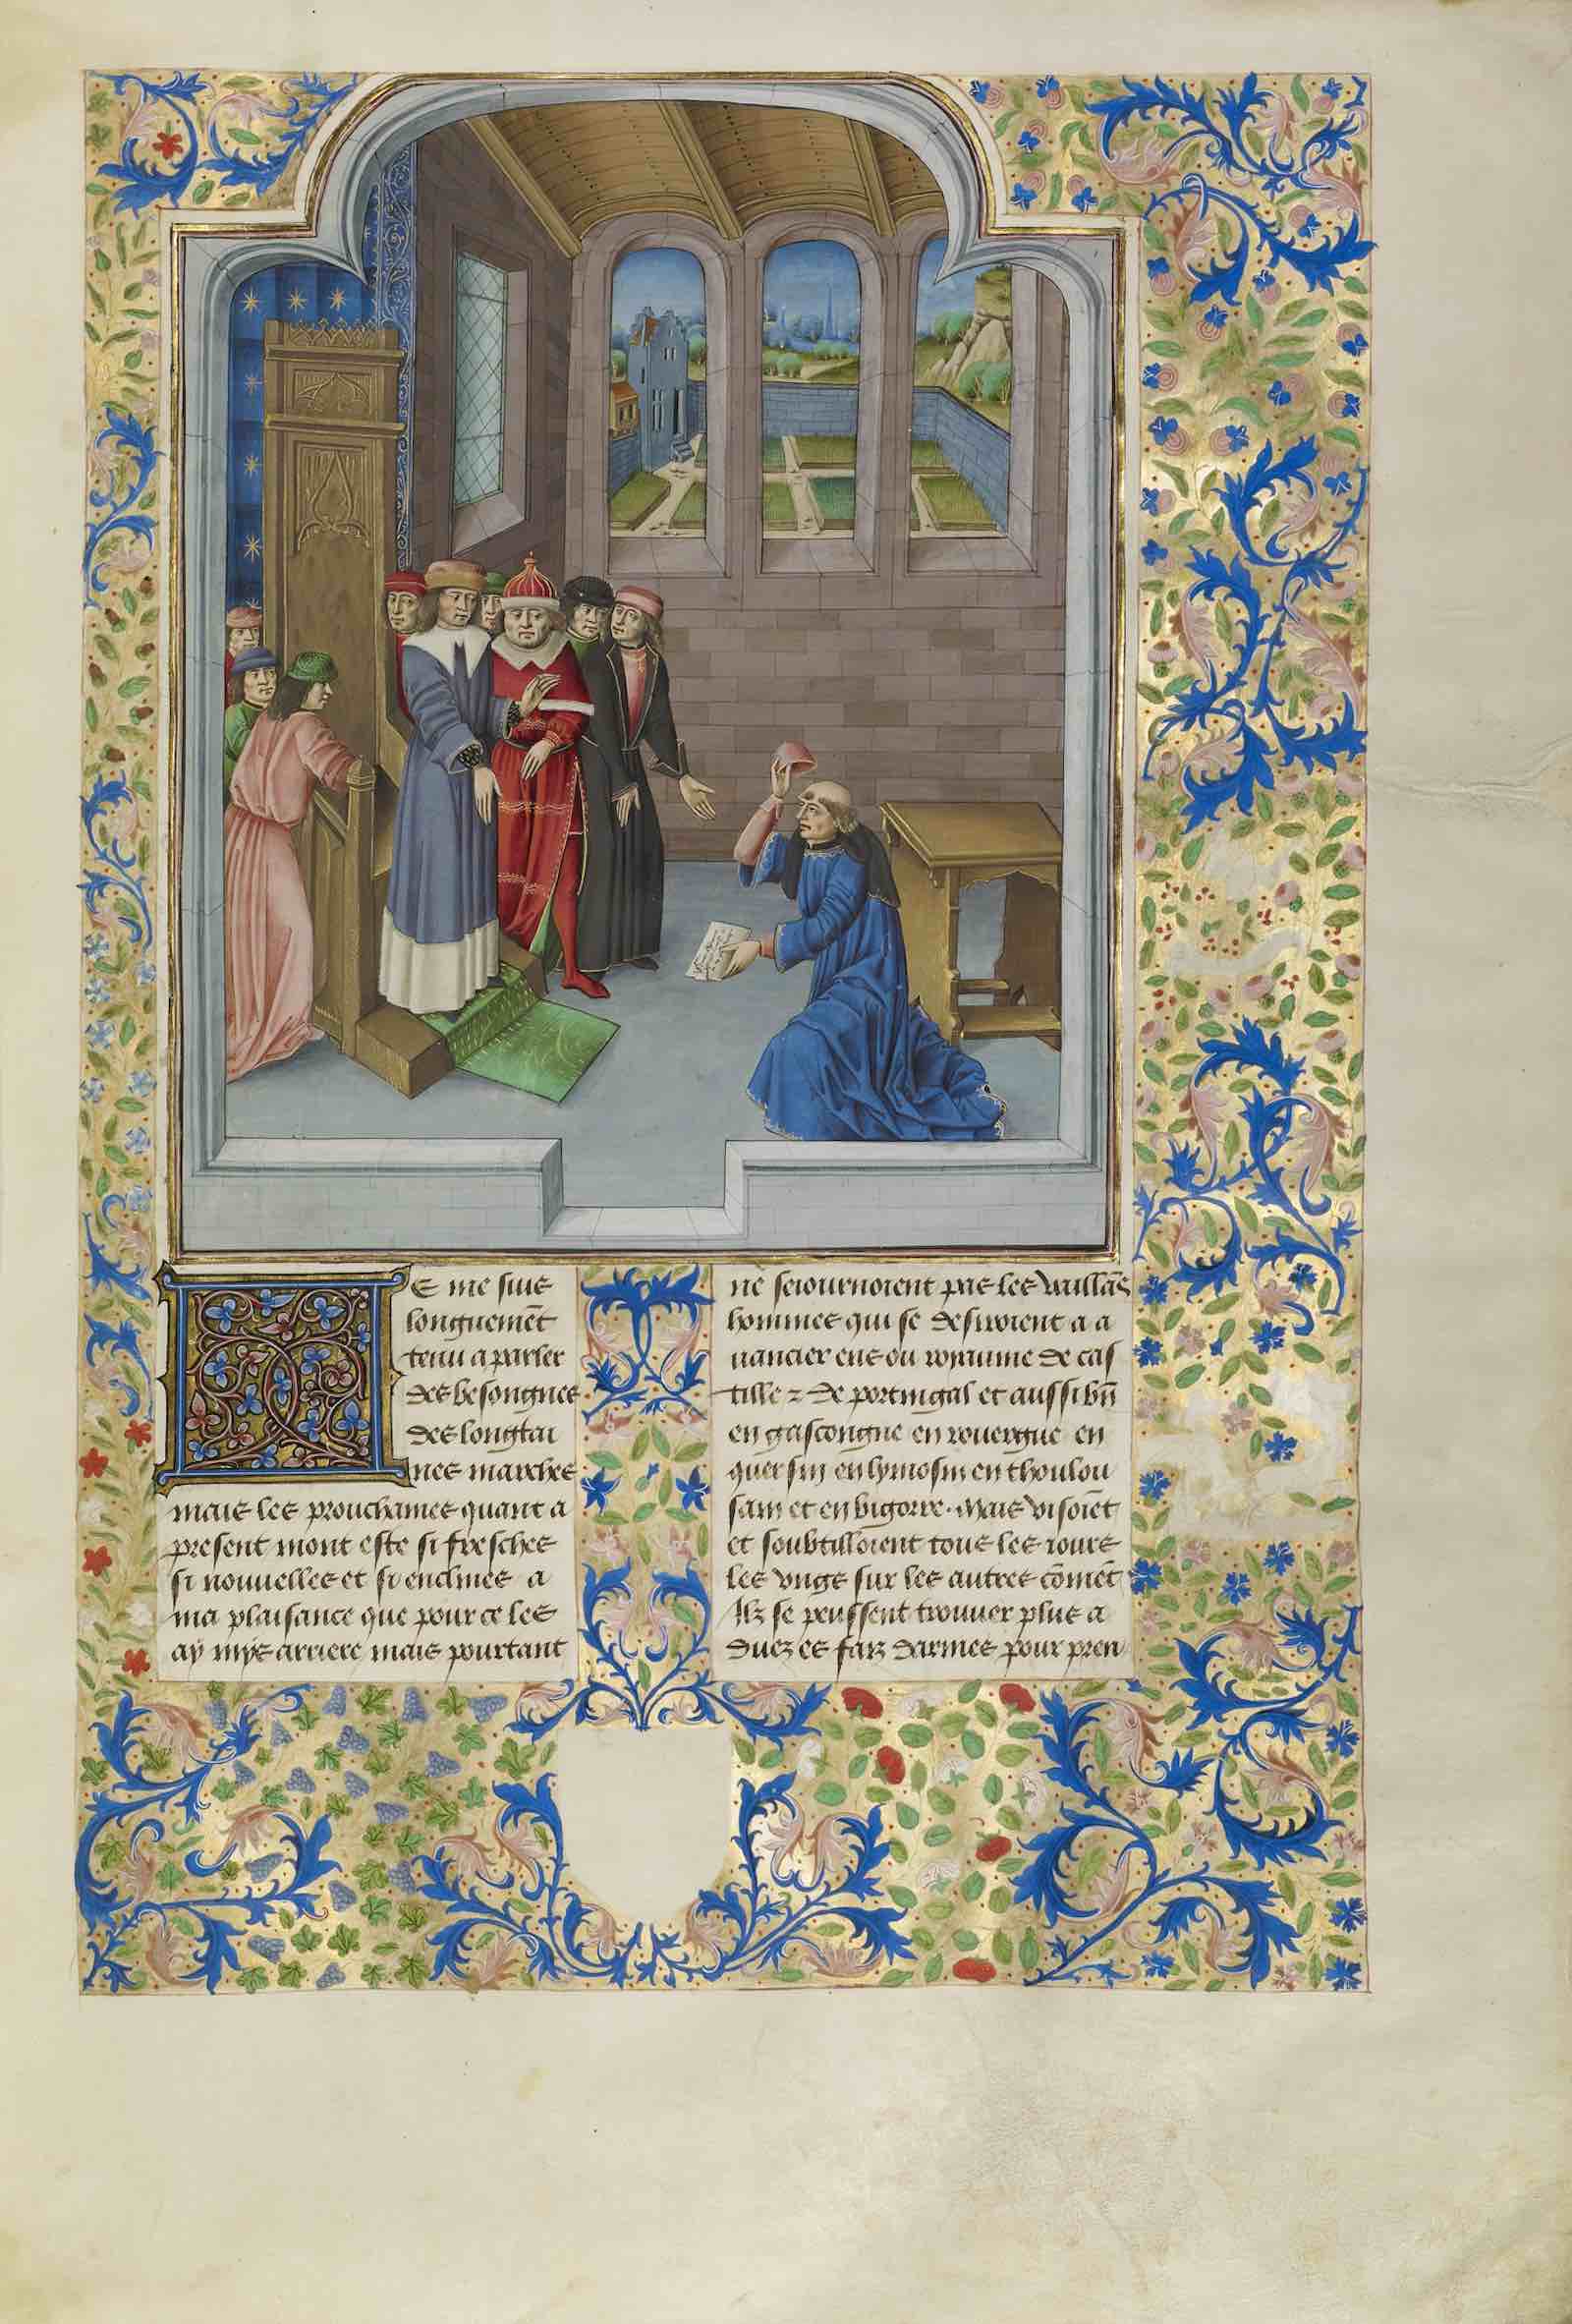 JE me suis
longuemẽt
tenu a parler
des besongnes
des longtai
nes marches
mais les prouchaines quant a
present mont este si fresches
si nouuelles et si enclines a
ma plaisance que pour ce les
ay mys arriere mais pourtant
ne seiournoient pas les vaillãs
hommes qui se desiroient a a
uancier ens ou royaume de cas
tille ⁊ de portingal et aussi bñ
en gascongne en rouergue en
quersin en lymosin en thoulou
sain et en bigorre. Mais visoiẽt
et soubtilloient tous les iours
les vngs sur les autres cõmẽt
Ilz se peussent trouuer plus a
en faiz darmes pour pren